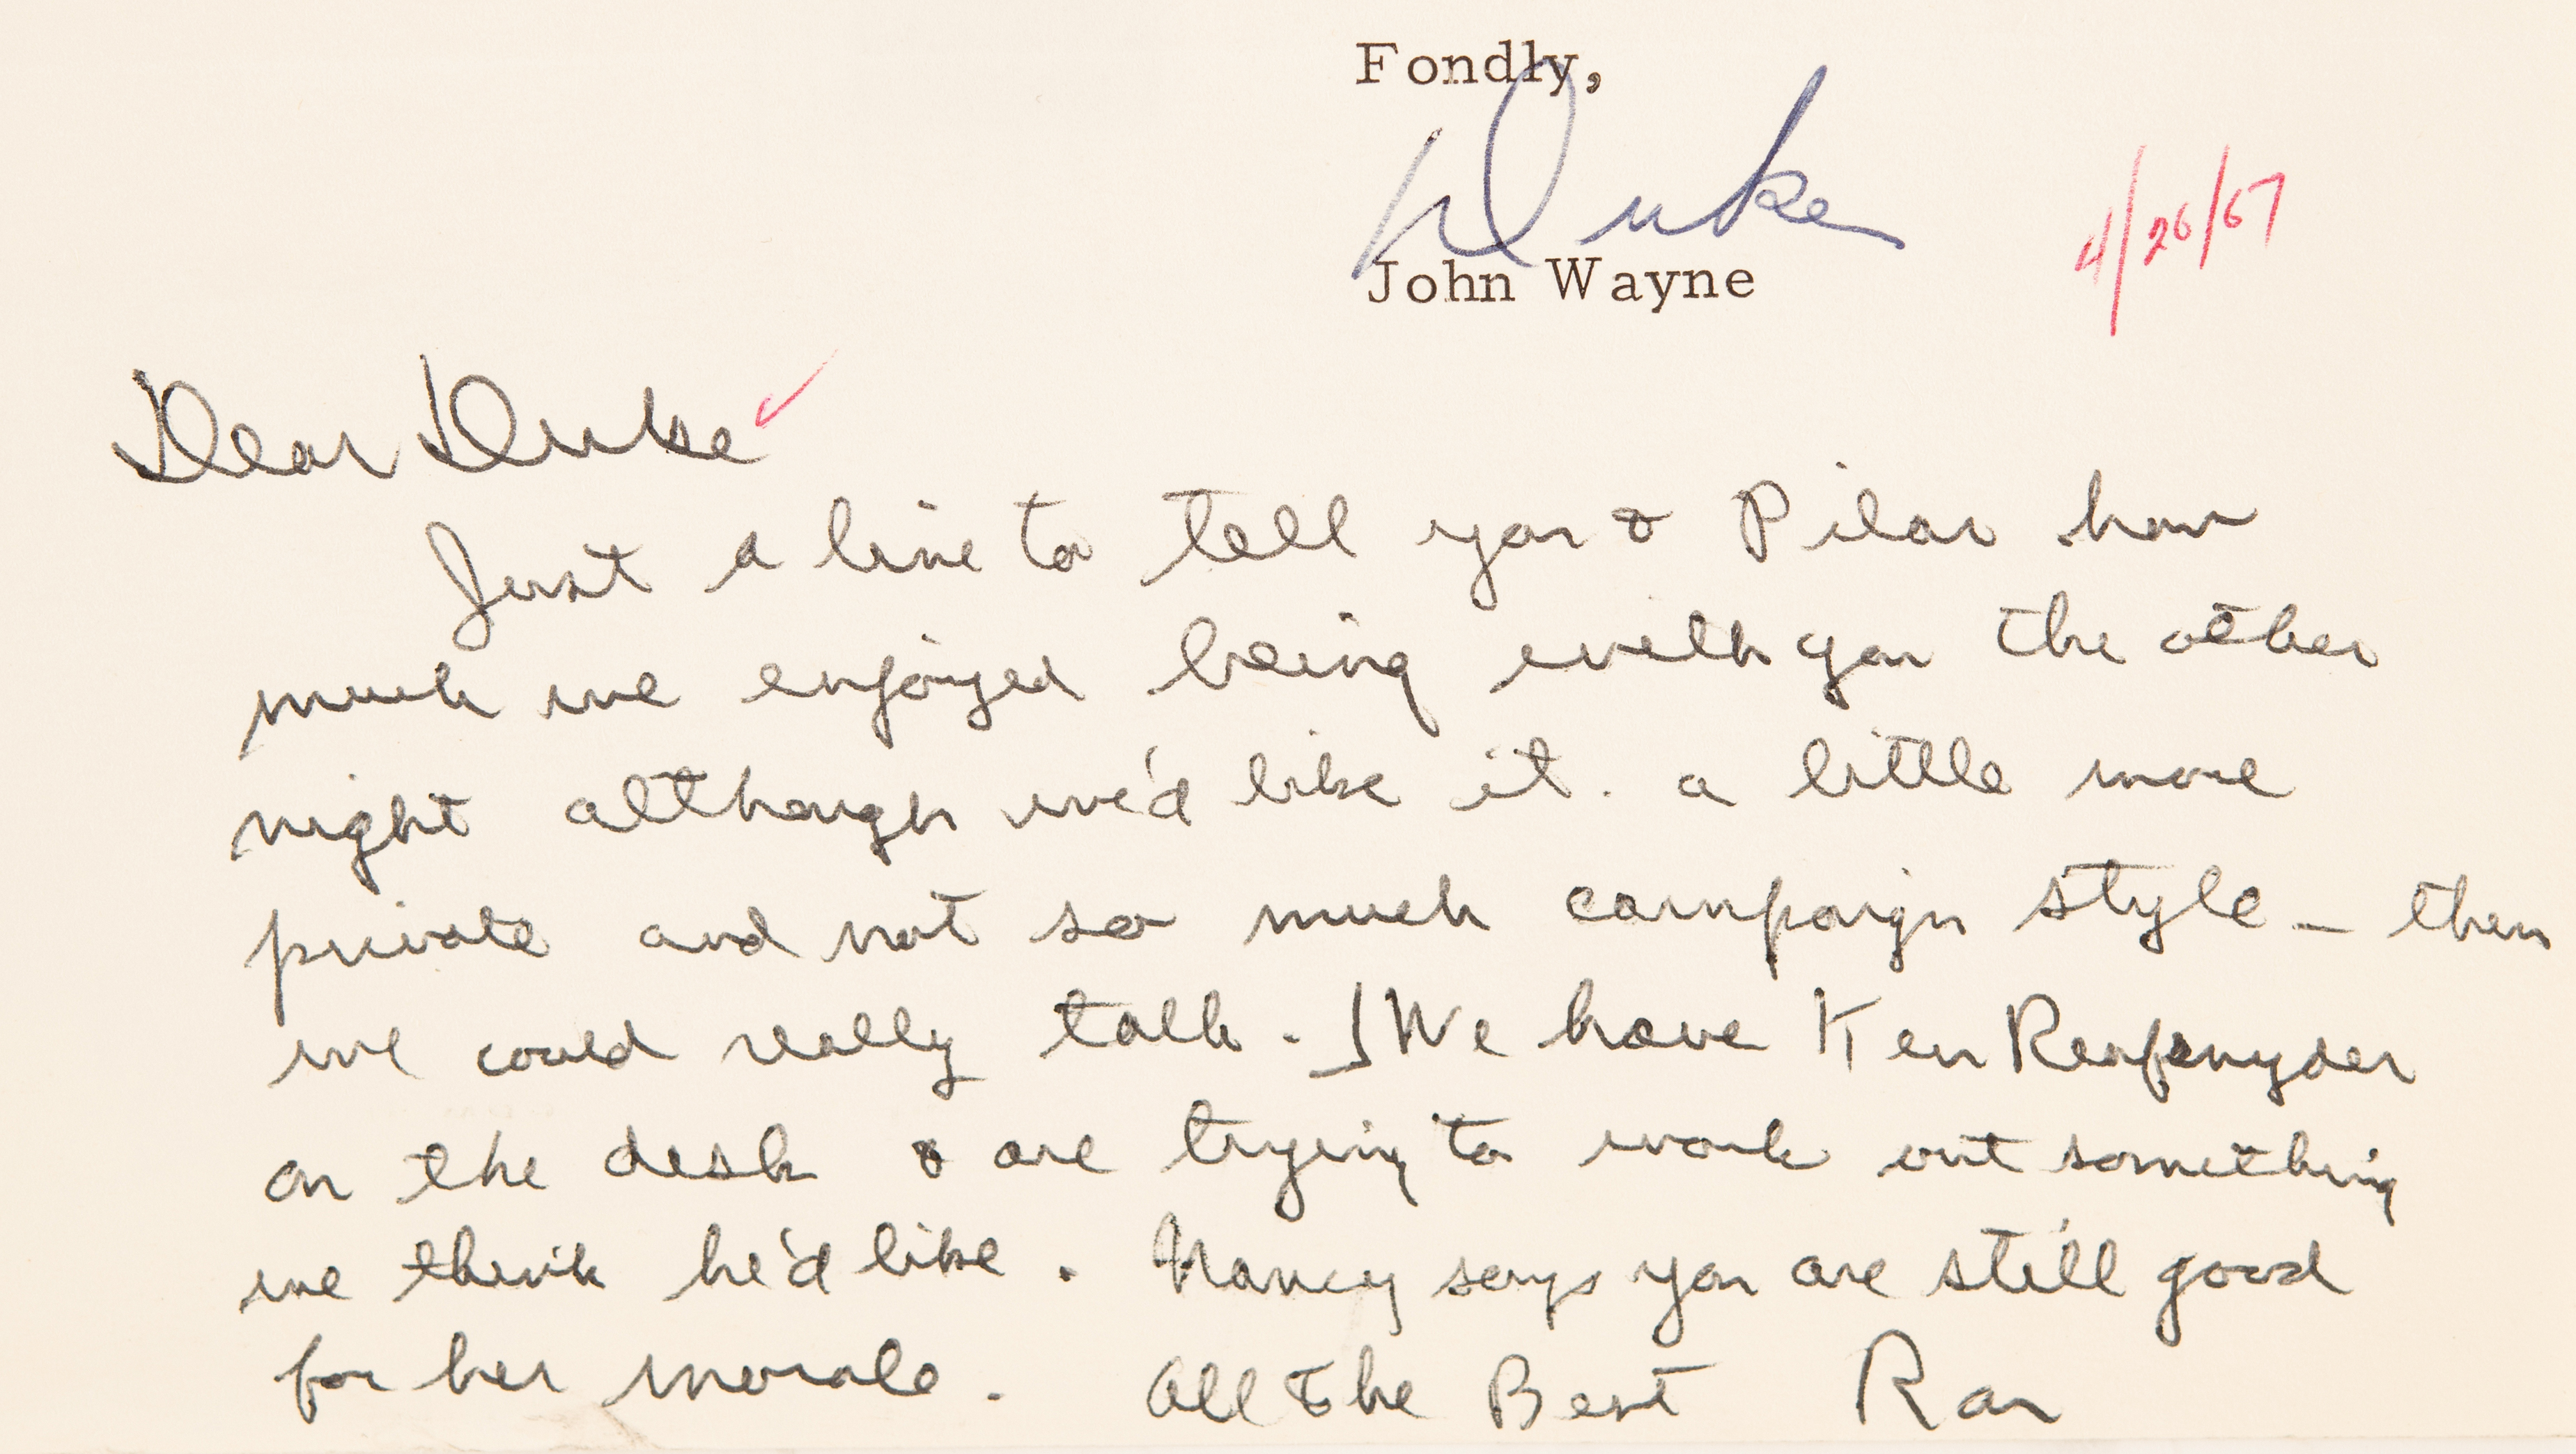 Fondly,
Duke
John Wayne
4/26/67
Dear Duke ✓
Just a line to tell you & Pilar how
much we enjoyed being with you the other
night although we'd like it. a little more
private and not so much campaign style — then
we could really talk. ⌋ We have Ken Reafsnyder
on the desk & are trying to work out something
we think he'd like. Nancy says you are still good
for her morale. All The Best Ron